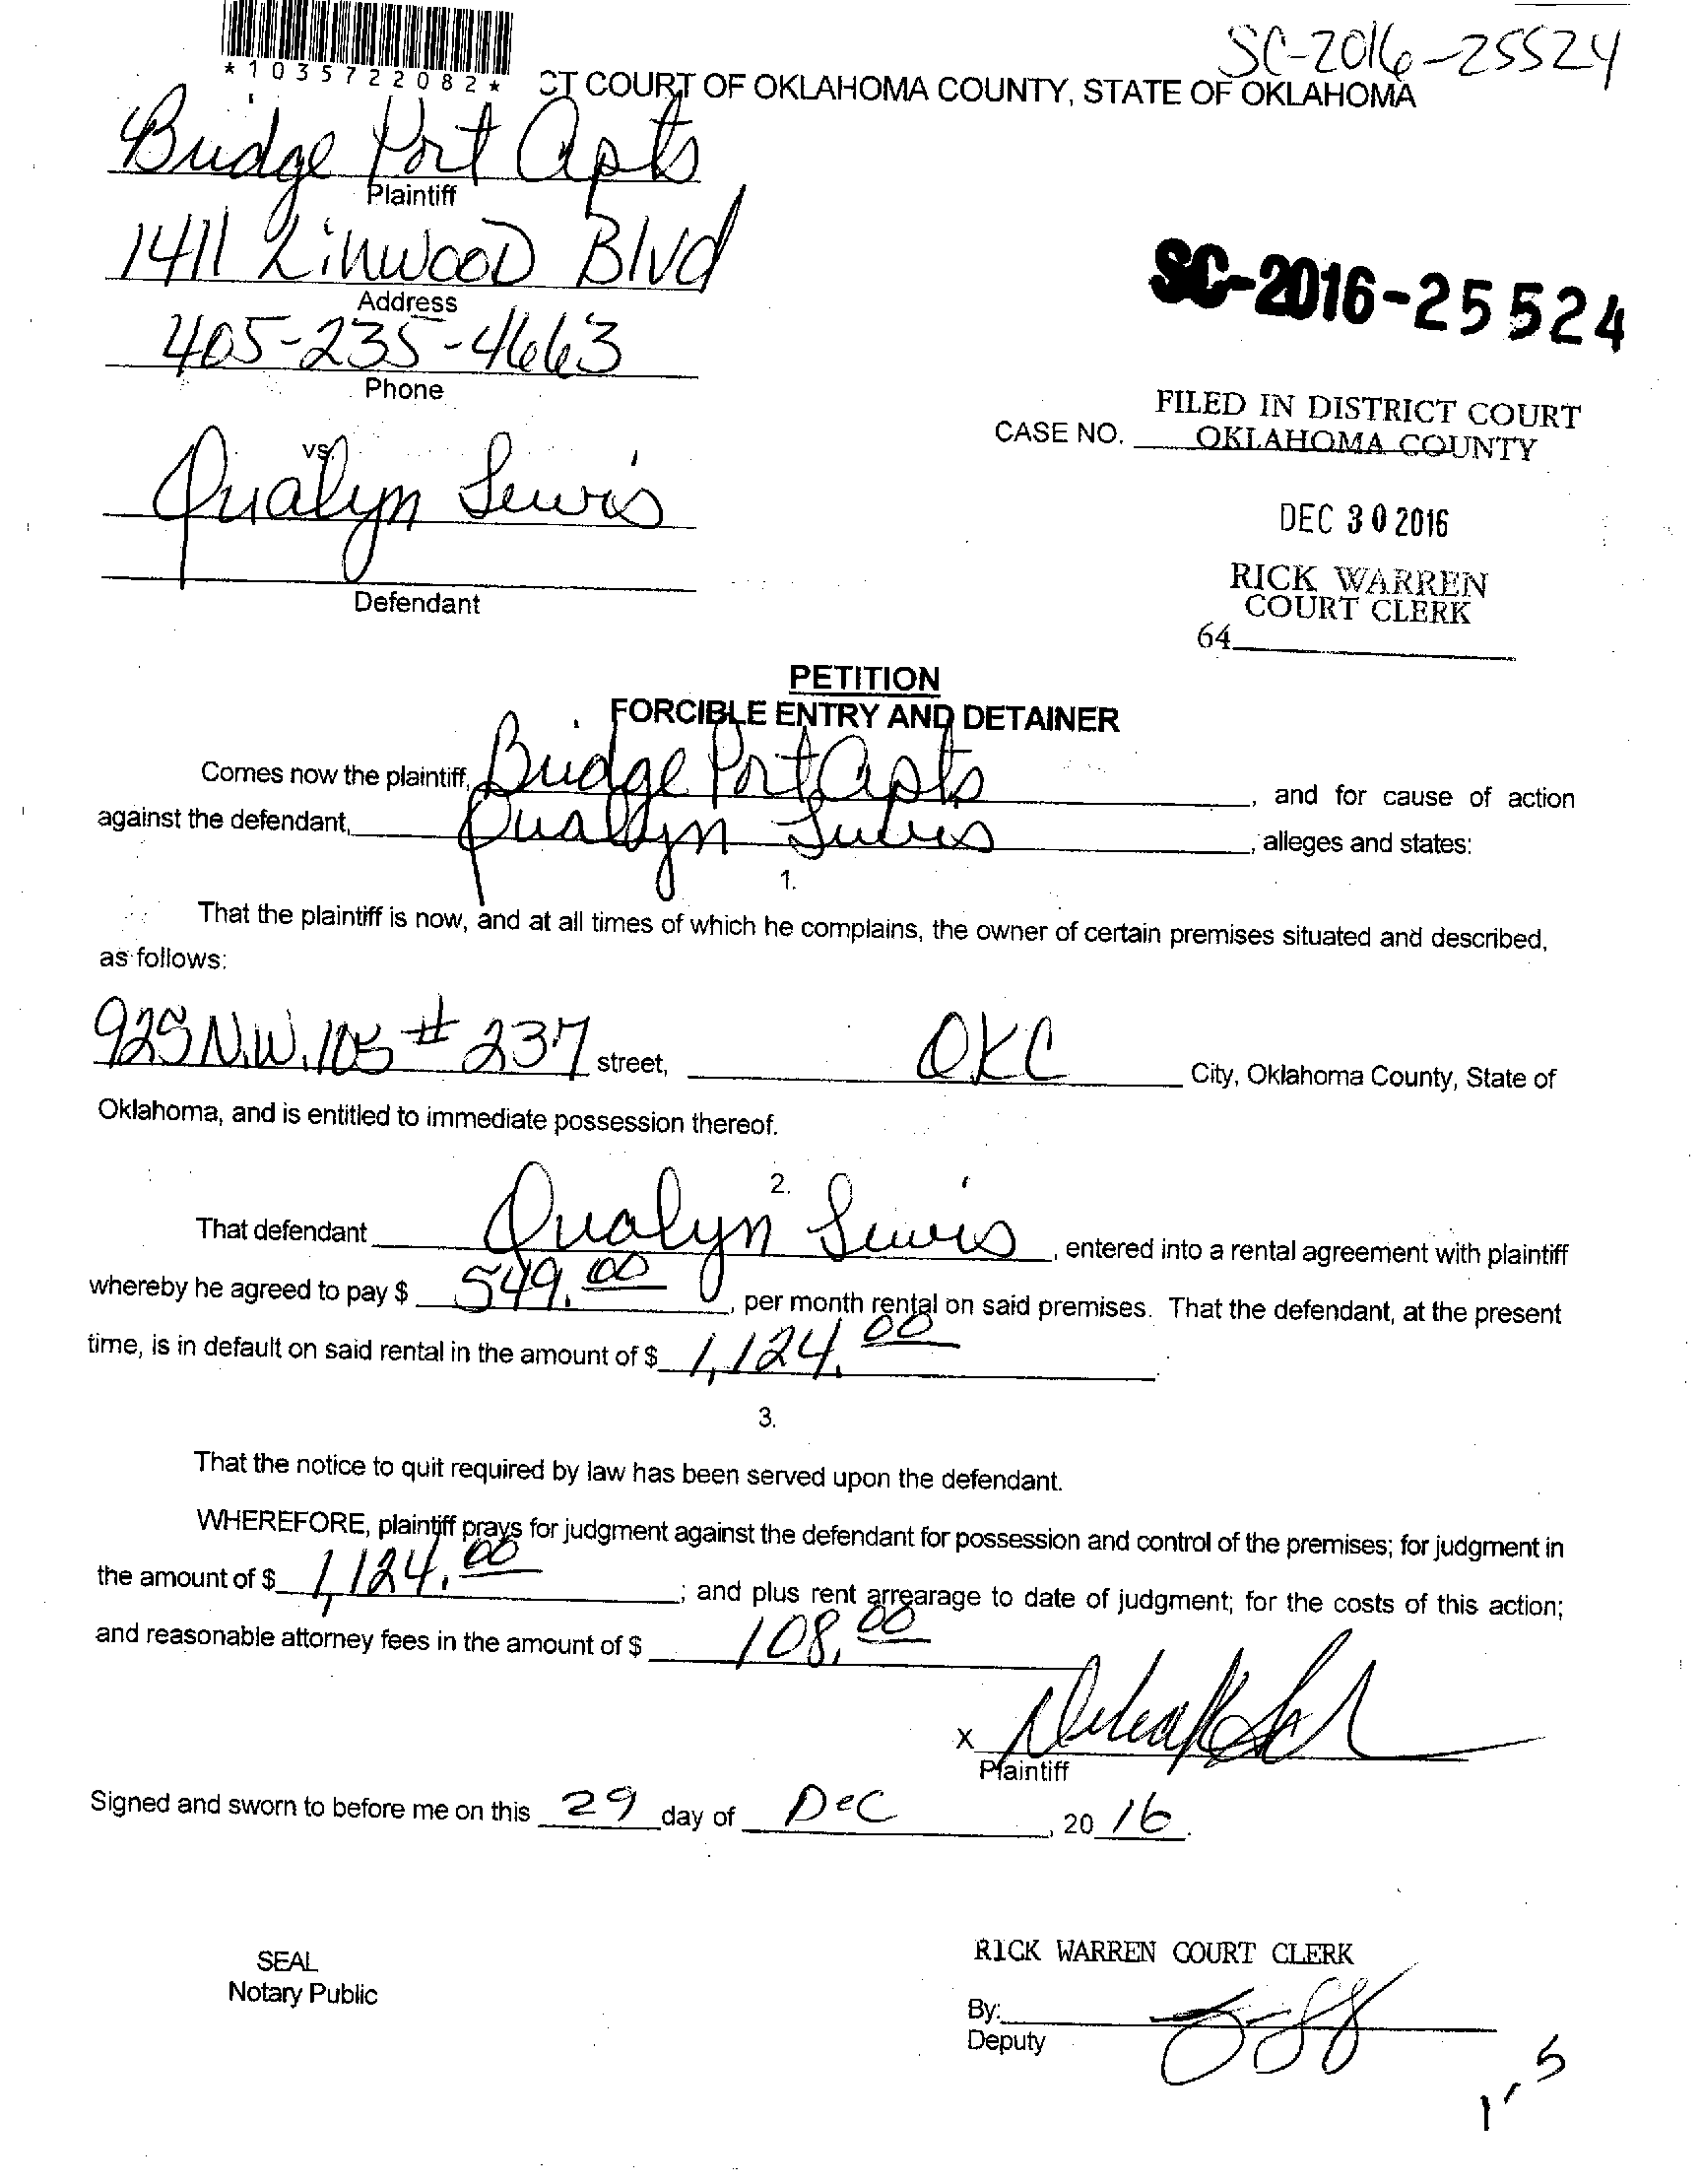 SC-2016-25524
*1035722082*
CT COURT OF OKLAHOMA COUNTY, STATE OF OKLAHOMA
Bridge Port Apts
Plaintiff
1411 Linwood Blvd
Address
405-235-4663
Phone
SC-2016-25524
FILED IN DISTRICT COURT
CASE NO. OKLAHOMA COUNTY
vs.
Qualyn Lewis
DEC 30 2016
Defendant
RICK WARREN
COURT CLERK
64
PETITION
FORCIBLE ENTRY AND DETAINER
Comes now the plaintiff, Bridge Port Apts, and for cause of action
against the defendant, Qualyn Lewis, alleges and states:
1.
That the plaintiff is now, and at all times of which he complains, the owner of certain premises situated and described,
as follows:
925 N.W. 105 # 237 street, OKC City, Oklahoma County, State of
Oklahoma, and is entitled to immediate possession thereof.
2.
That defendant Qualyn Lewis, entered into a rental agreement with plaintiff
whereby he agreed to pay $ 549.00, per month rental on said premises. That the defendant, at the present
time, is in default on said rental in the amount of $ 1,124.00.
3.
That the notice to quit required by law has been served upon the defendant.
WHEREFORE, plaintiff prays for judgment against the defendant for possession and control of the premises; for judgment in
the amount of $ 1,124.00; and plus rent arrearage to date of judgment; for the costs of this action;
and reasonable attorney fees in the amount of $ 108.00
X
Plaintiff
Signed and sworn to before me on this 29 day of Dec, 20 16.
SEAL
Notary Public
RICK WARREN COURT CLERK
By:
Deputy